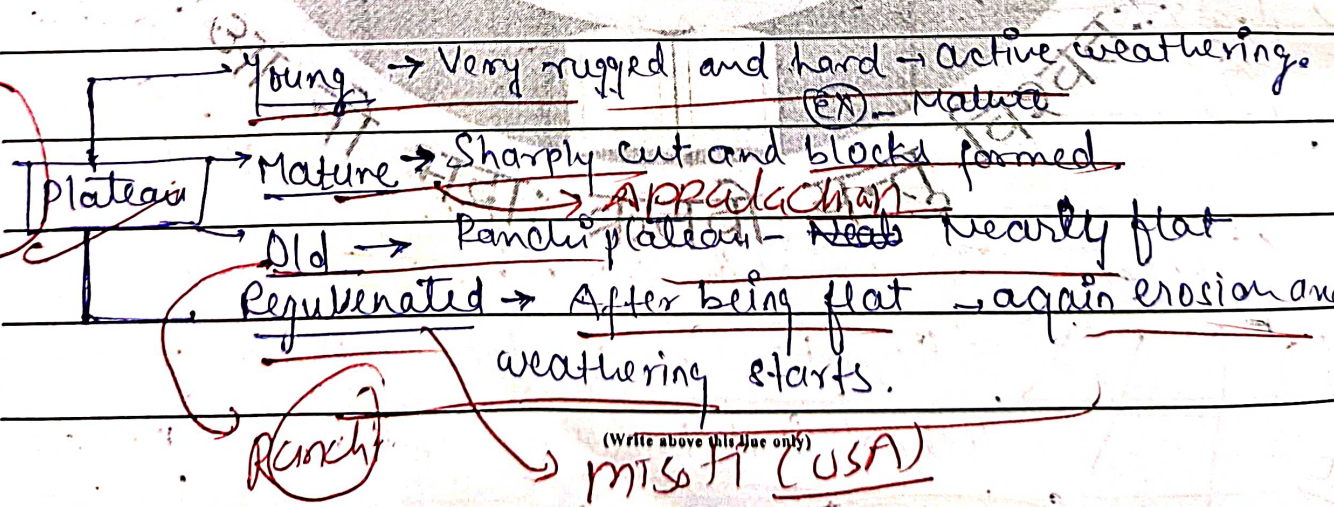 Young → Very rugged and hard → active weathering.
(EX) - Malwa
Plateau
Mature → Sharply cut and blocks formed
→ Appalachian
Old → Ranchi plateau - Nearly flat
Rejuvenated → After being flat → again erosion an
weathering starts.
(Write above this line only)
Ranchi
(USA)